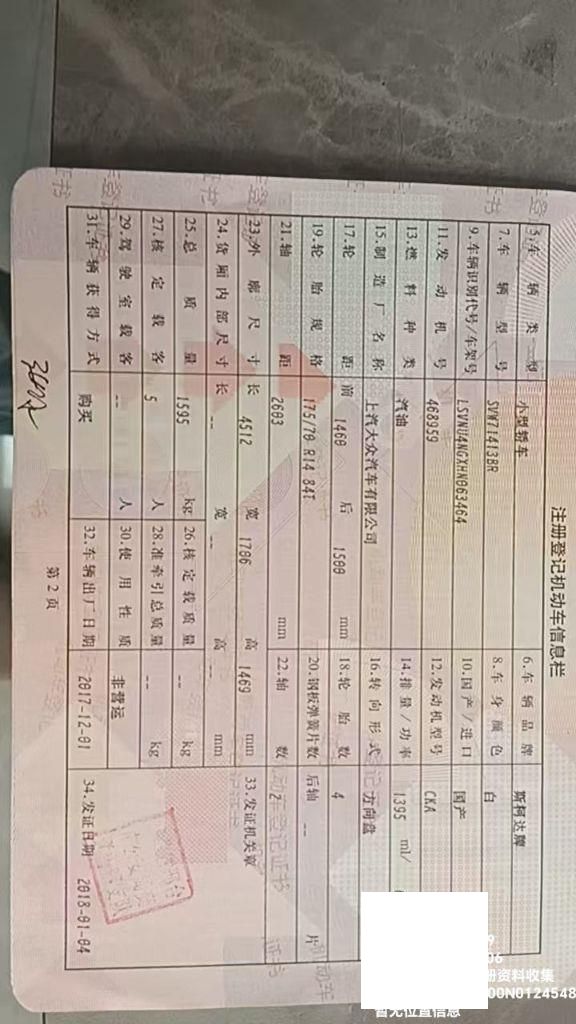 注册登记机动车信息栏
5.车辆类型 小型轿车 6.车辆品牌 斯柯达牌
7.车辆型号 SVW71413BR 8.车身颜色 白
9.车辆识别代号/车架号 LSVNU4NGXHN063464 10.国产/进口 国产
11.发动机号 468959 12.发动机型号 CKA
13.燃料种类 汽油 14.排量/功率 1395 ml/
15.制造厂名称 上汽大众汽车有限公司 16.转向形式 方向盘
17.轮距 前 1460 后 1500 mm 18.轮胎数 4
19.轮胎规格 175/70 R14 84T 20.钢板弹簧片数 后轴 -- 片
21.轴距 2603 mm 22.轴数 2
23.外廓尺寸 长 4512 宽 1706 高 1469 mm 33.发证机关章
24.货厢内部尺寸 长 -- 宽 -- 高 -- mm
25.总质量 1595 kg 26.核定载质量 -- kg
27.核定载客 5 人 28.准牵引总质量 -- kg
29.驾驶室载客 -- 人 30.使用性质 非营运
31.车辆获得方式 购买 32.车辆出厂日期 2017-12-01 34.发证日期 2018-01-04
第2页
9
06
册资料收集
00N0124548
暂无位置信息